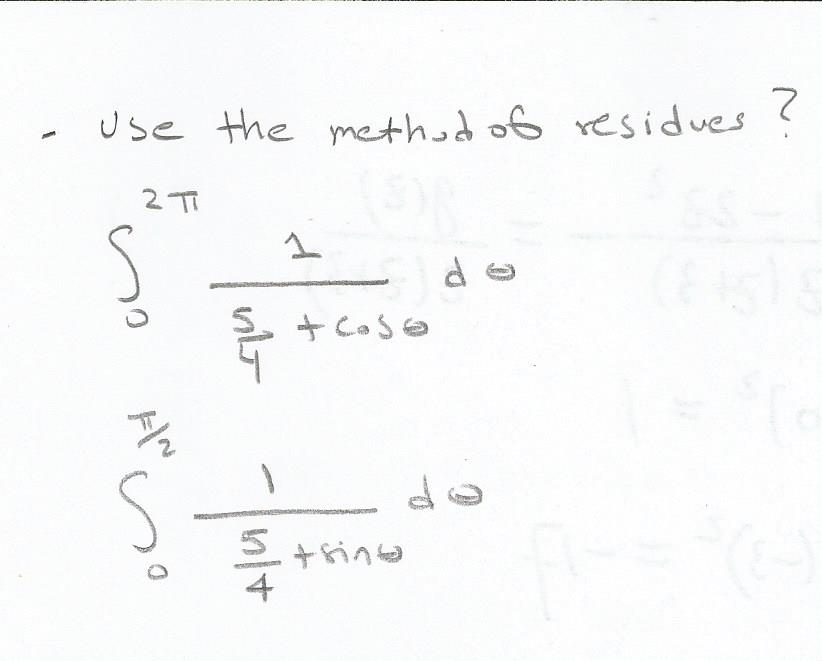 - Use the method of residues ?
2π
∫ 1 / (5/4 + cosθ) dθ
0
π/2
∫ 1 / (5/4 + sinθ) dθ
0